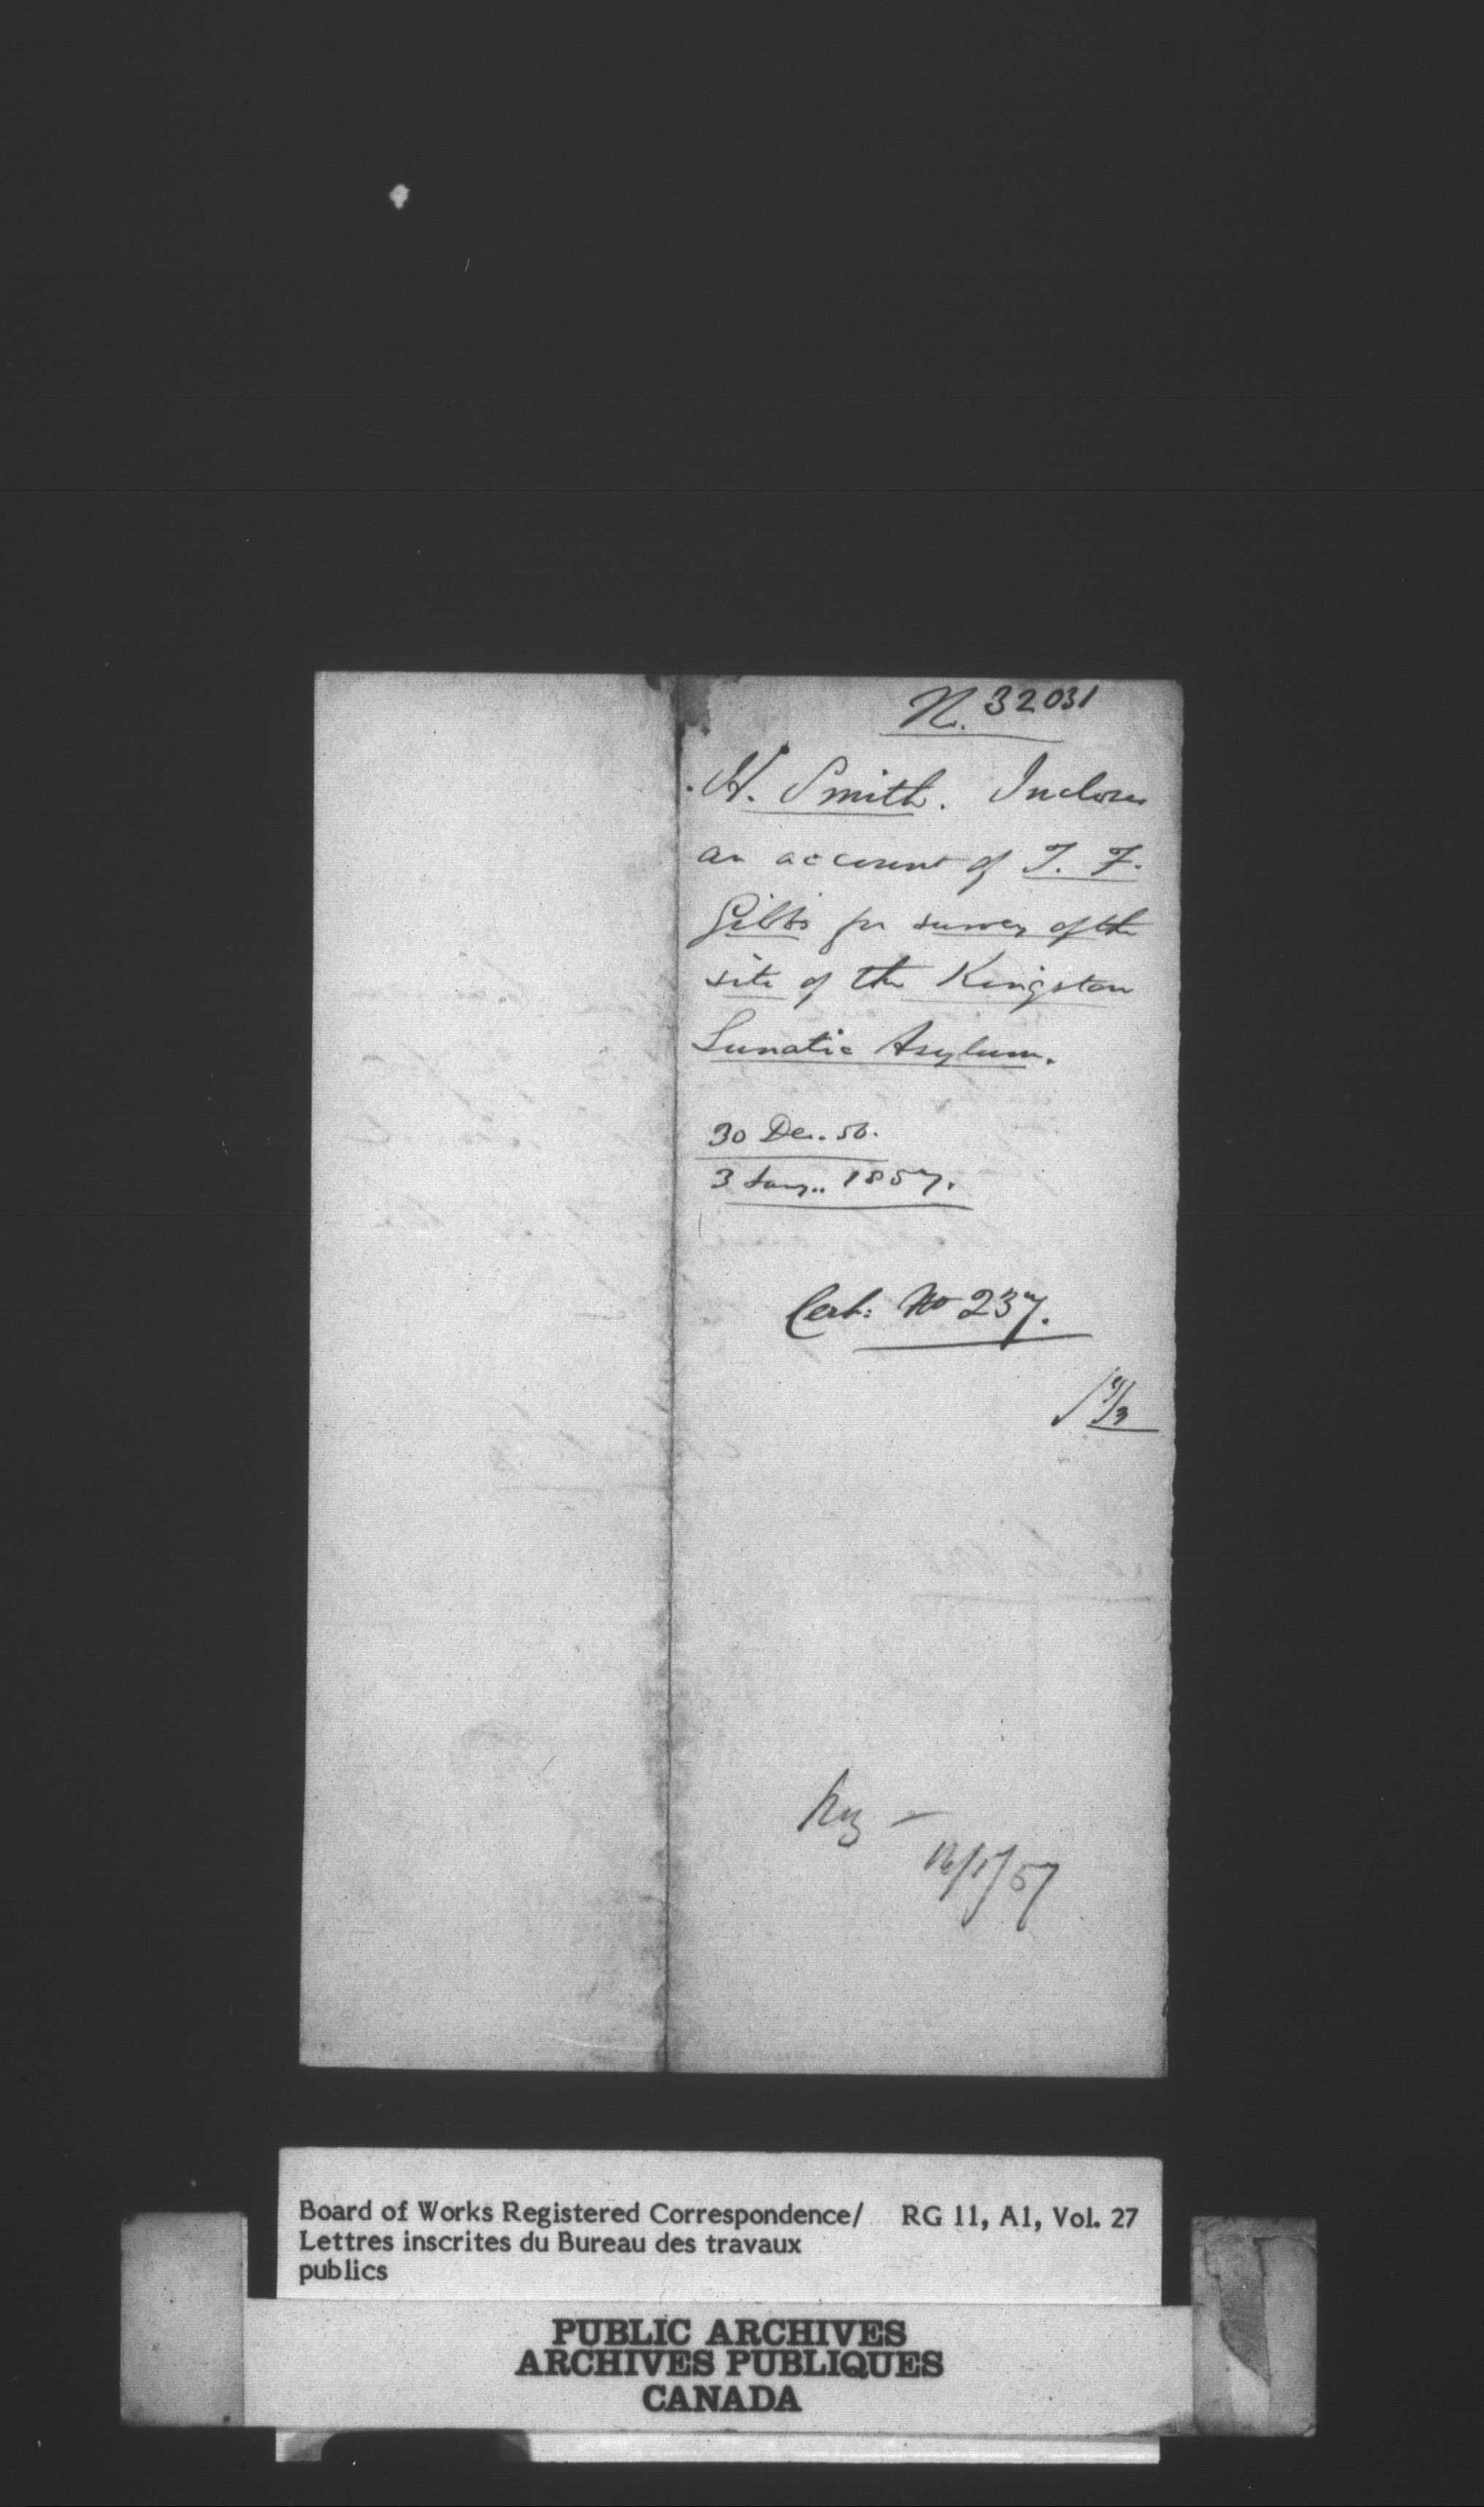 N. 32031
H. Smith. Incloses
an account of T. F.
Gibbs for survey of the
site of the Kingston
Lunatic Asylum.
30 Dec. 56.
3 Jany.. 1857.
Cert: No 237.
16/1/57
Board of Works Registered Correspondence/ RG 11, A1, Vol. 27
Lettres inscrites du Bureau des travaux
publics
PUBLIC ARCHIVES
ARCHIVES PUBLIQUES
CANADA